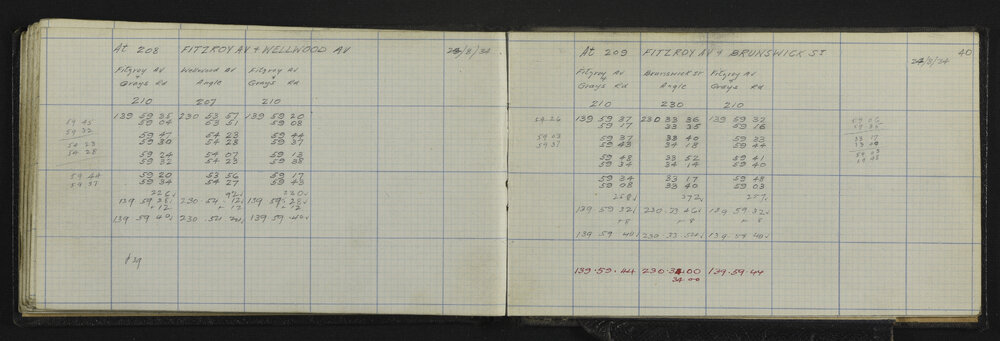 At 208 FITZROY AV + WELLWOOD AV 24/8/34
Fitzroy Av Wellwood Av Fitzroy Av
+ +
Grays Rd Angle Grays Rd
210 207 210
139 59 35 230 53 57 139 59 20
59 04 53 51 59 08
59 45
59 32
59 47 54 23 59 44
59 30 54 28 59 37
54 23
54 28
59 24 54 07 59 13
59 32 54 23 59 38
59 44
59 37
59 20 53 56 59 17
59 34 54 27 59 43
226 92 220
139 59 28 230 54 12 139 59 28
+ 12 + 12 + 12
139 59 40 230 54 24 139 59 40
P 39
At 209 FITZROY AV + BRUNSWICK ST 40
24/8/34
Fitzroy Av Brunswick St Fitzroy Av
+ +
Grays Rd Angle Grays Rd
210 230 210
59 26 139 59 37 230 33 36 139 59 32
59 17 33 35 59 16
59 03 59 37 33 40 59 33
59 37 59 43 34 18 59 44
33 17
59 48 33 52 59 41
59 34 34 14 59 40
59 03
59 34 33 17 59 48
59 08 33 40 59 03
258 372 257
139 59 32 230 33 46 139 59 32
+ 8 + 8 + 8
139 59 40 230 33 54 139 59 40
139.59.44 230.34.00 139.59.44
34 00